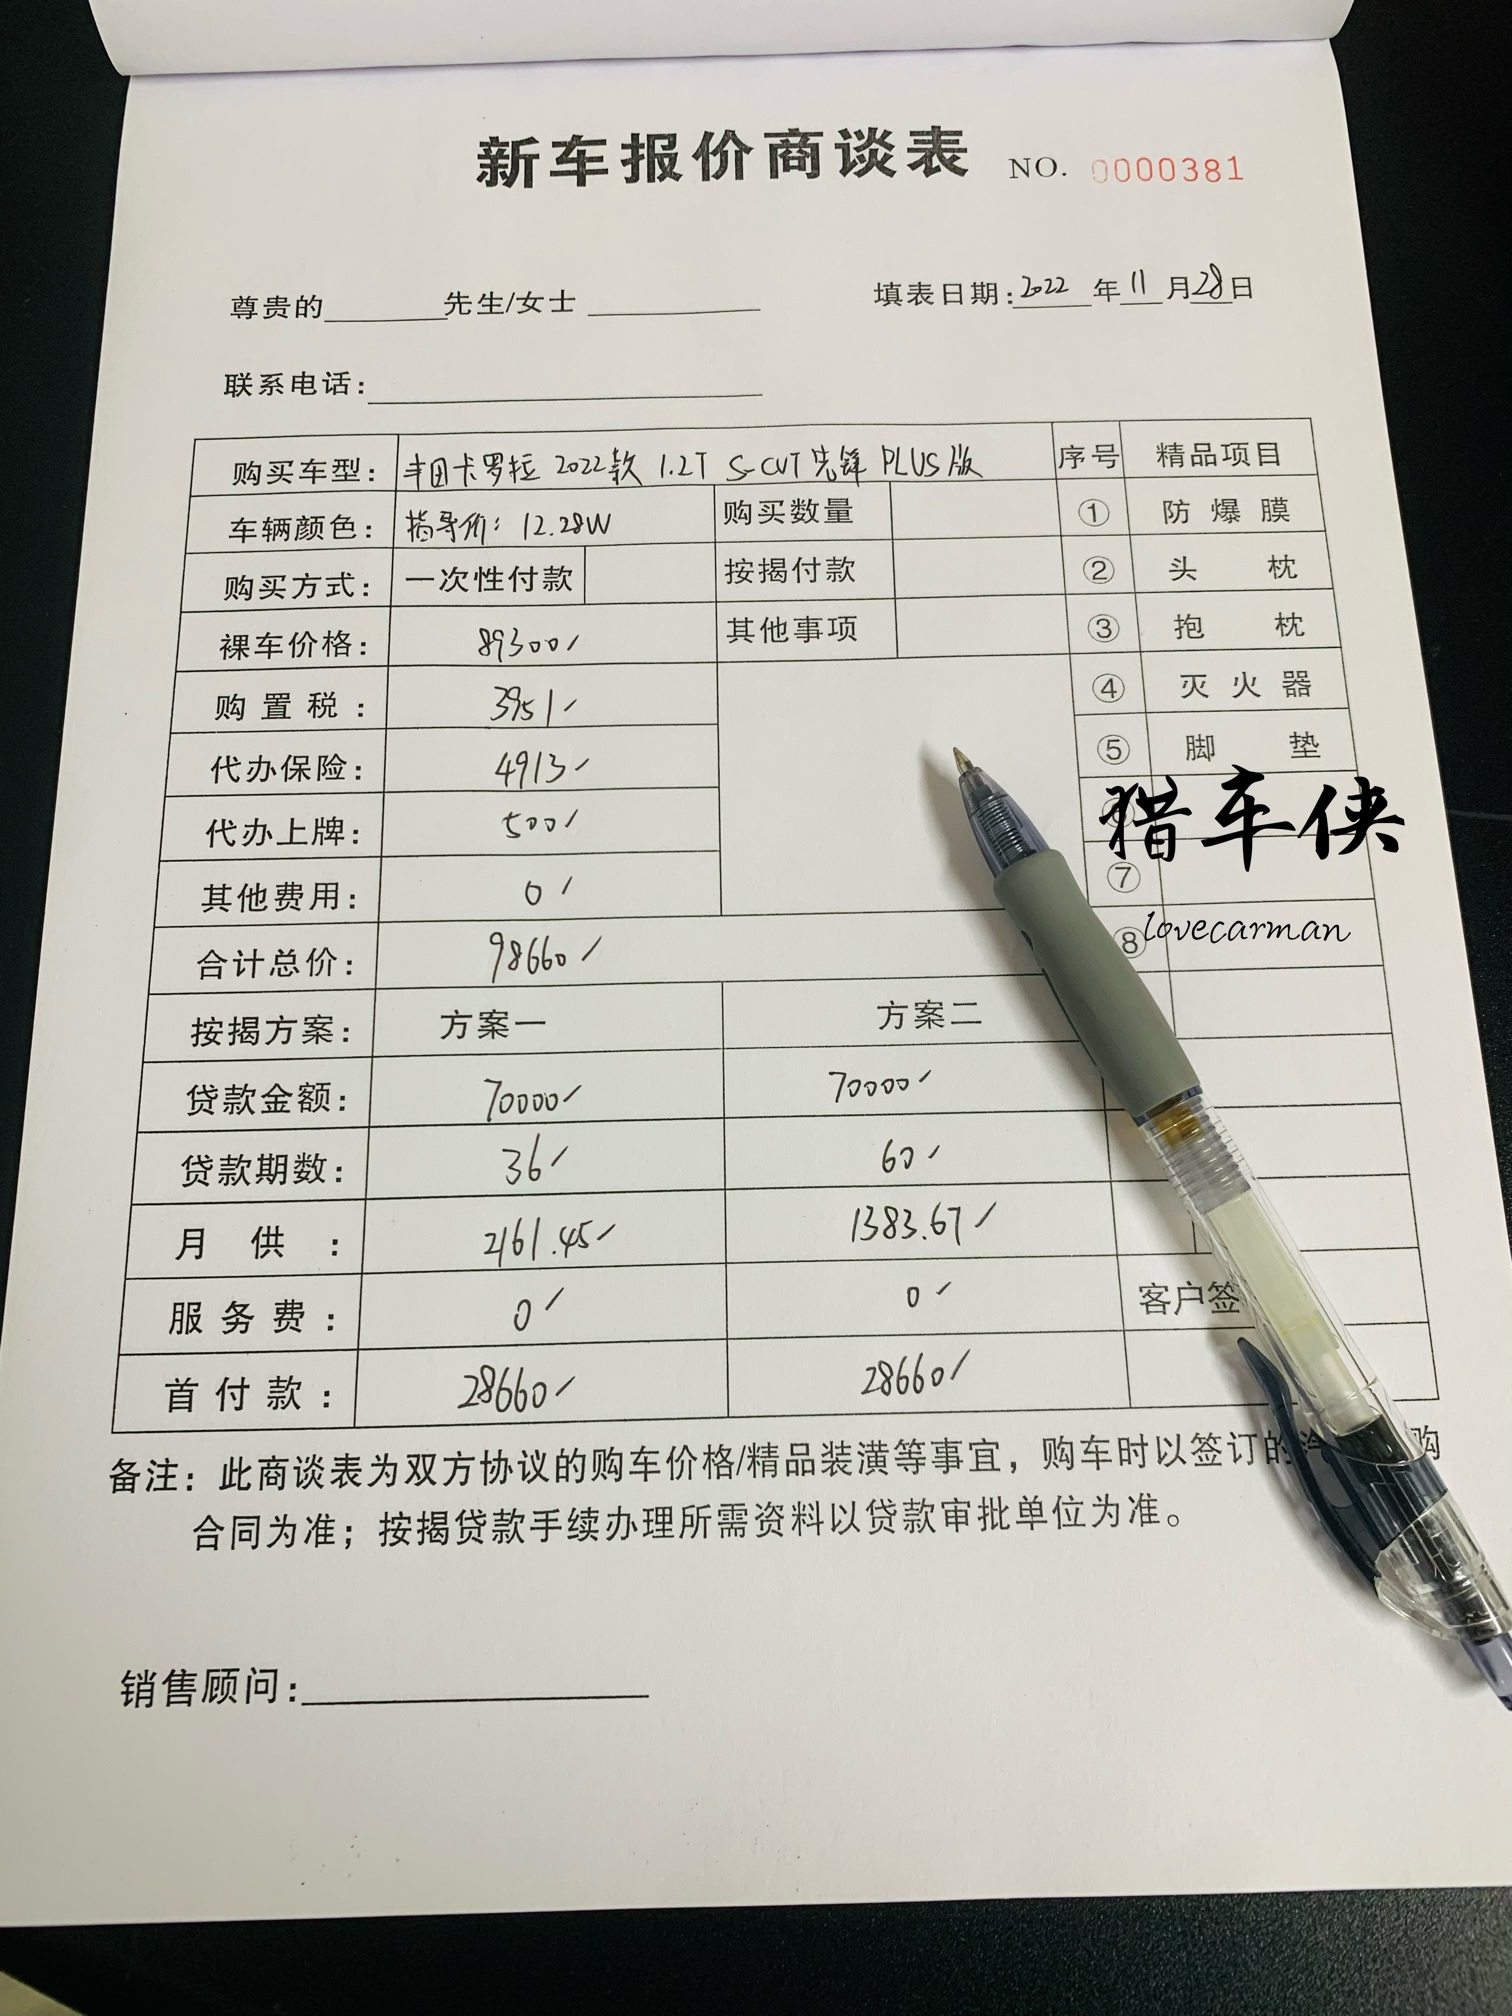 新车报价商谈表 NO. 0000381
尊贵的 先生/女士 填表日期:2022年11月28日
联系电话:
购买车型: 丰田卡罗拉 2022款 1.2T S-CVT 先锋 PLUS版 序号 精品项目
车辆颜色: 指导价: 12.28W 购买数量 ① 防爆膜
购买方式: 一次性付款 按揭付款 ② 头枕
裸车价格: 89300 其他事项 ③ 抱枕
购置税: 3951 ④ 灭火器
代办保险: 4913 ⑤ 脚垫
代办上牌: 500 ⑥
猎车侠
其他费用: 0 ⑦
合计总价: 98660 ⑧
lovecarman
按揭方案: 方案一 方案二
贷款金额: 70000 70000
贷款期数: 36 60
月供: 2161.45 1383.67
服务费: 0 0 客户签
首付款: 28660 28660
备注:此商谈表为双方协议的购车价格/精品装潢等事宜,购车时以签订的 购
合同为准;按揭贷款手续办理所需资料以贷款审批单位为准。
销售顾问: